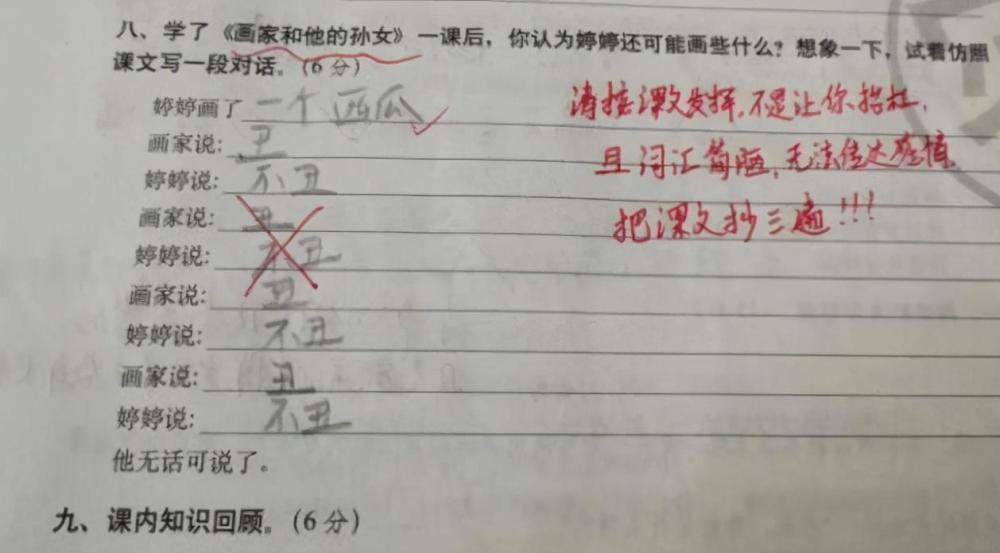 八、学了《画家和他的孙女》一课后，你认为婷婷还可能画些什么？想象一下，试着仿照
课文写一段对话。(6分)
婷婷画了一个西瓜
画家说：丑
婷婷说：不丑
画家说：丑
婷婷说：不丑
画家说：丑
婷婷说：不丑
画家说：丑
婷婷说：不丑
他无话可说了。
请按课文发挥，不是让你抬杠，
且词汇简陋，无法传达感情。
把课文抄三遍!!!
九、课内知识回顾。(6分)